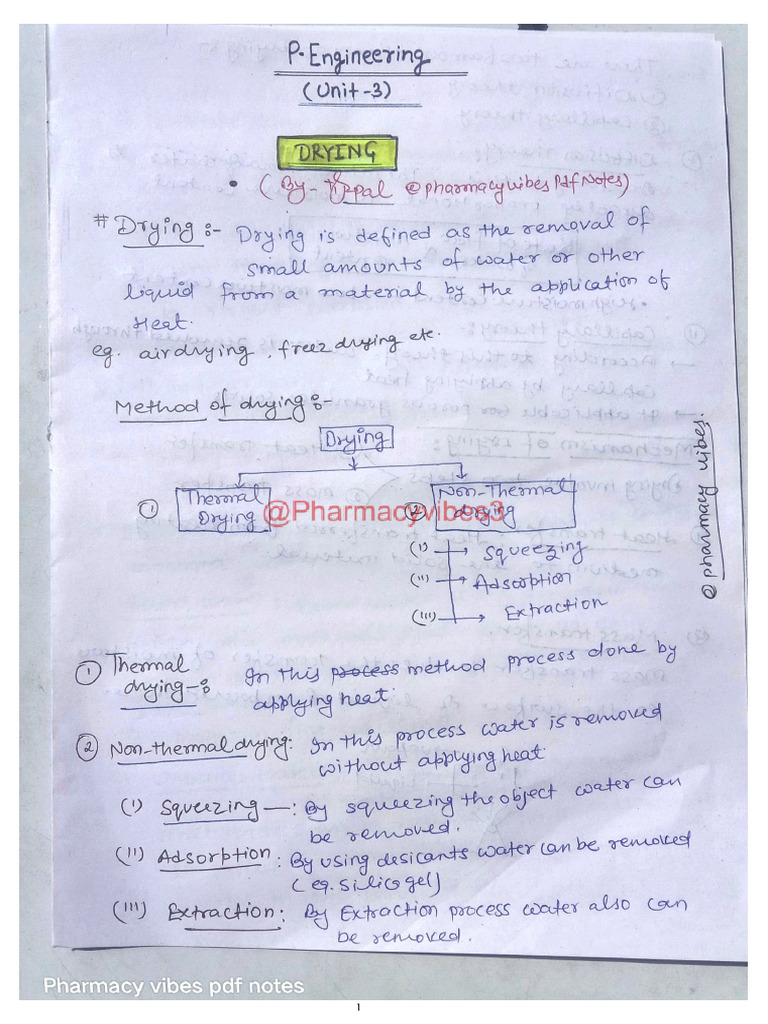 P-Engineering
(Unit-3)
DRYING
• (By- @pharmacyvibes Pdf Notes)
# Drying :- Drying is defined as the removal of
small amounts of water or other
liquid from a material by the application of
Heat.
eg. air drying, freez drying etc.
Method of drying :-
Drying
① Thermal
Drying
② Non-Thermal
drying
@Pharmacyvibes3
(i) → Squeezing
(ii) → Adsorption
(iii) → Extraction
@pharmacy vibes.
① Thermal
drying-: In this process method process done by
applying heat.
② Non-thermal drying: In this process water is removed
without applying heat.
(i) Squeezing —: By squeezing the object water can
be removed.
(ii) Adsorption : By using desicants water can be removed
(eg. silica gel)
(iii) Extraction : By Extraction process water also can
be removed.
Pharmacy vibes pdf notes
1